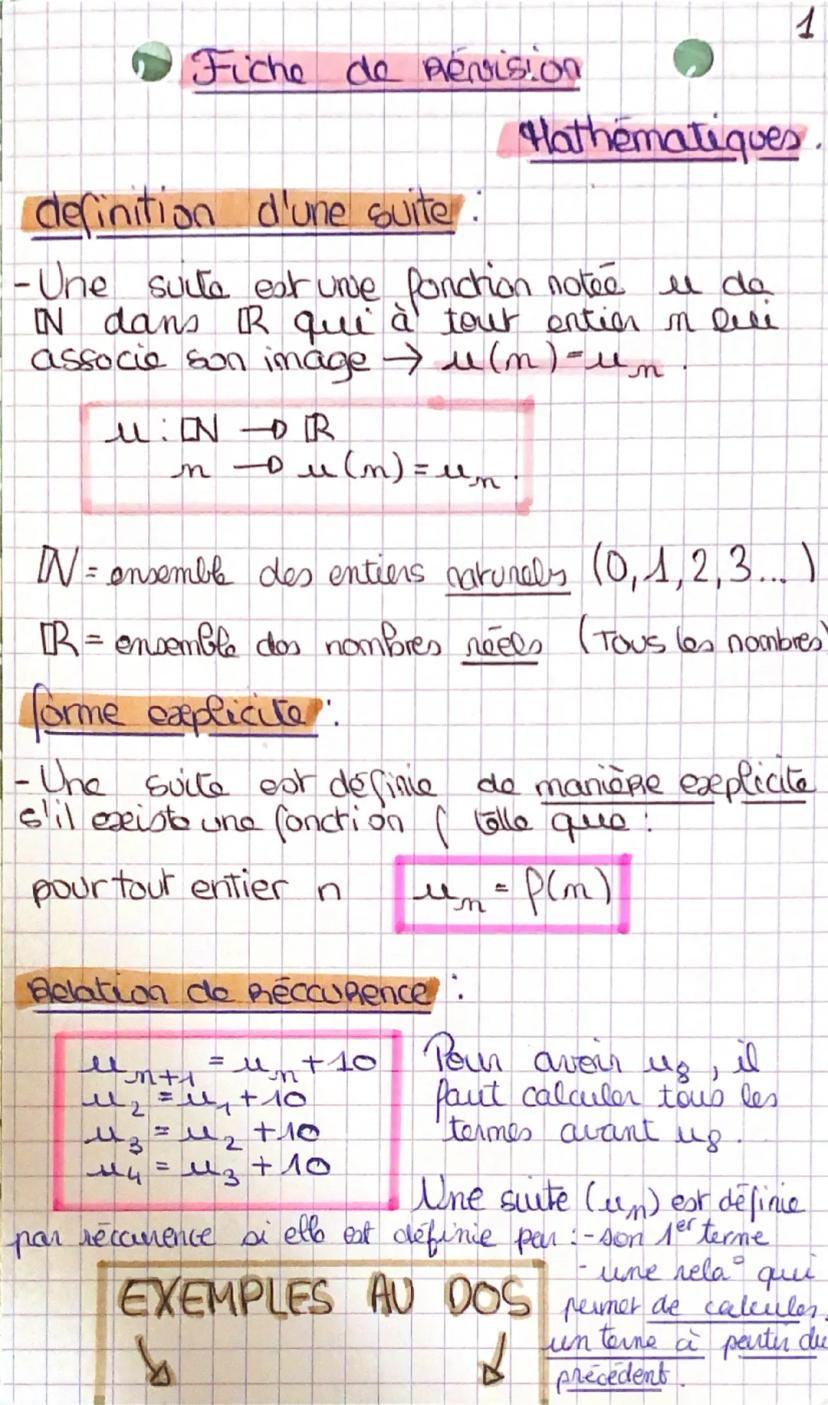 1
Fiche de Révision
Mathématiques.
definition d'une suite :
- Une suite est une fonction notée u de
ℕ dans ℝ qui à tout entier n lui
associe son image → u(n)=uₙ.
u : ℕ → ℝ
n → u(n) = uₙ.
ℕ = ensemble des entiers naturels (0, 1, 2, 3...)
ℝ = ensemble des nombres réels (Tous les nombres)
forme explicite :
- Une suite est définie de manière explicite
s'il existe une fonction f telle que :
pour tout entier n uₙ = f(n)
Relation de réccurence :
uₙ₊₁ = uₙ + 10
u₂ = u₁ + 10
u₃ = u₂ + 10
u₄ = u₃ + 10
Pour avoir u₈, il
faut calculer tous les
termes avant u₈.
Une suite (uₙ) est définie
par réccurence si elle est définie par : - son 1er terme
- une rela° qui
permet de calculer
un terme à partir du
précédent.
EXEMPLES AU DOS